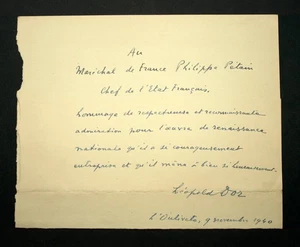 Au
Maréchal de France Philippe Pétain
Chef de l'Etat Français,
hommage de respectueuse et reconnaissante
admiration pour l'œuvre de renaissance
nationale qu'il a si courageusement
entreprise et qu'il mène à bien si heureusement.
Léopold Dor
9 novembre 1940